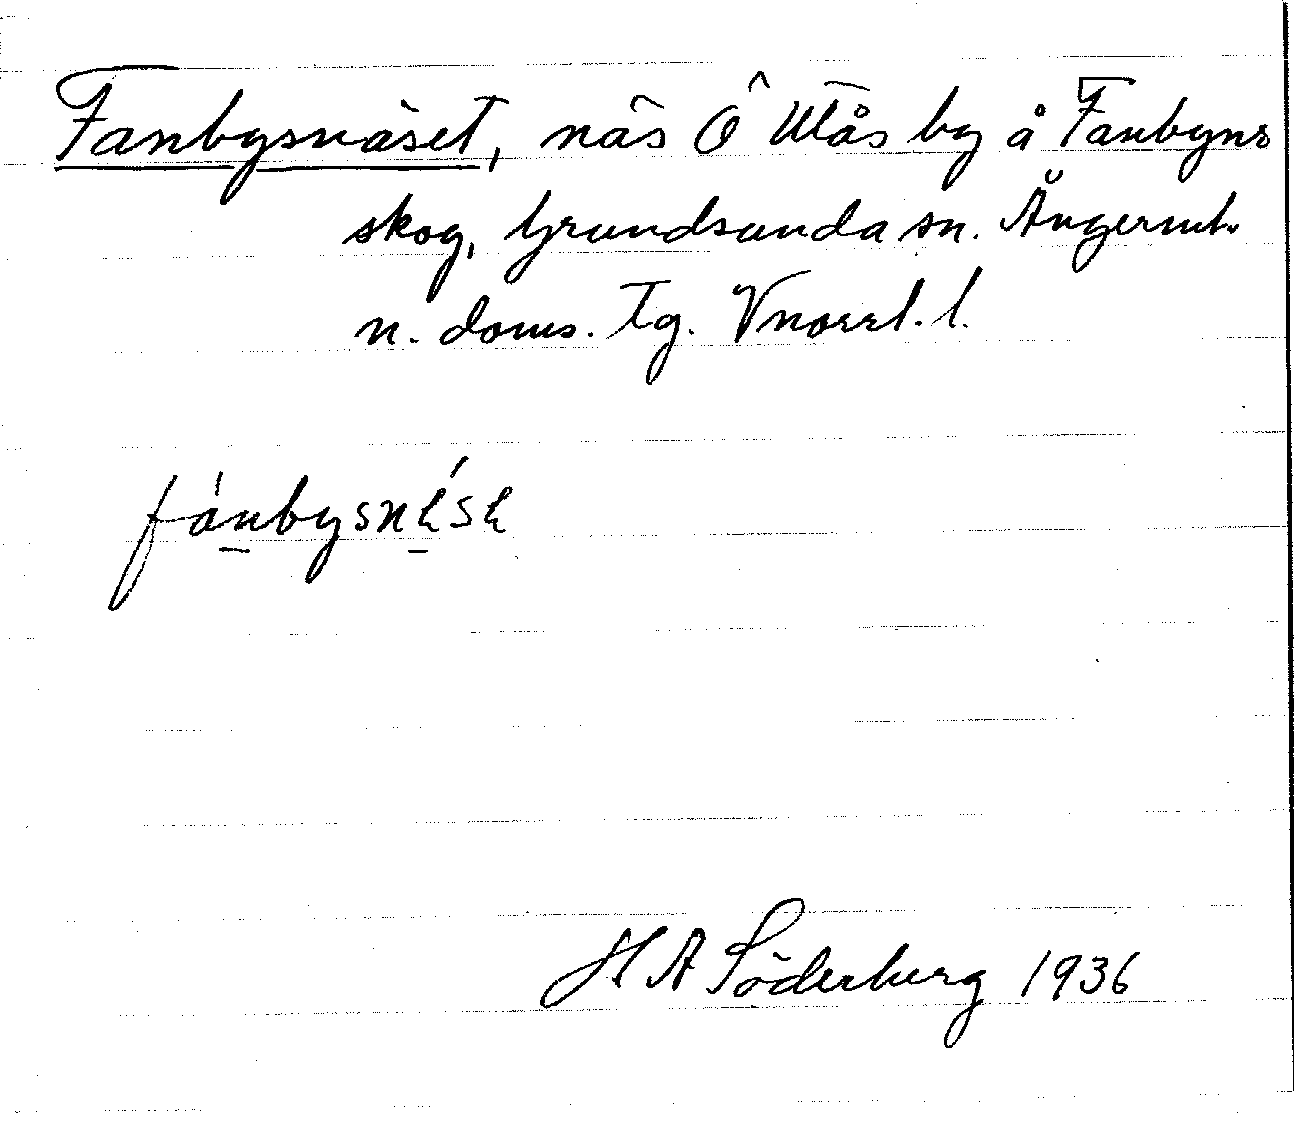 Fanbysnäset, näs Ö Utås by å Fanbyns
skog, Grundsunda sn. Ångerml.
n. doms. Tg. Vnorrl. l.
fánbysnésе
H A Söderberg 1936